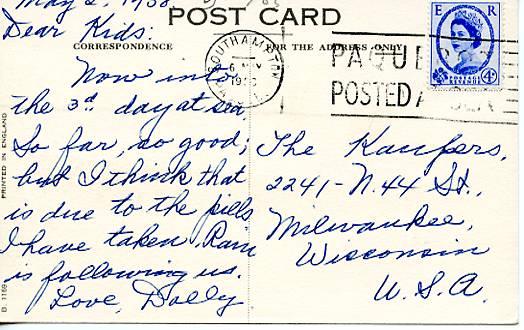 May 2, 1958
POST CARD
Dear Kids:
CORRESPONDENCE
FOR THE ADDRESS ONLY
Now into
the 3rd day at sea
So far, so good;
but I think that
is due to the pills
I have taken. Rain
is following us.
Love, Dolly
The Kaufers,
2241-N. 44 St.,
Milwaukee,
Wisconsin
U.S.A.
SOUTHAMPTON
PAQUEB
POSTED A SEA
E R
POSTAGE REVENUE
4D
PRINTED IN ENGLAND
B 1169